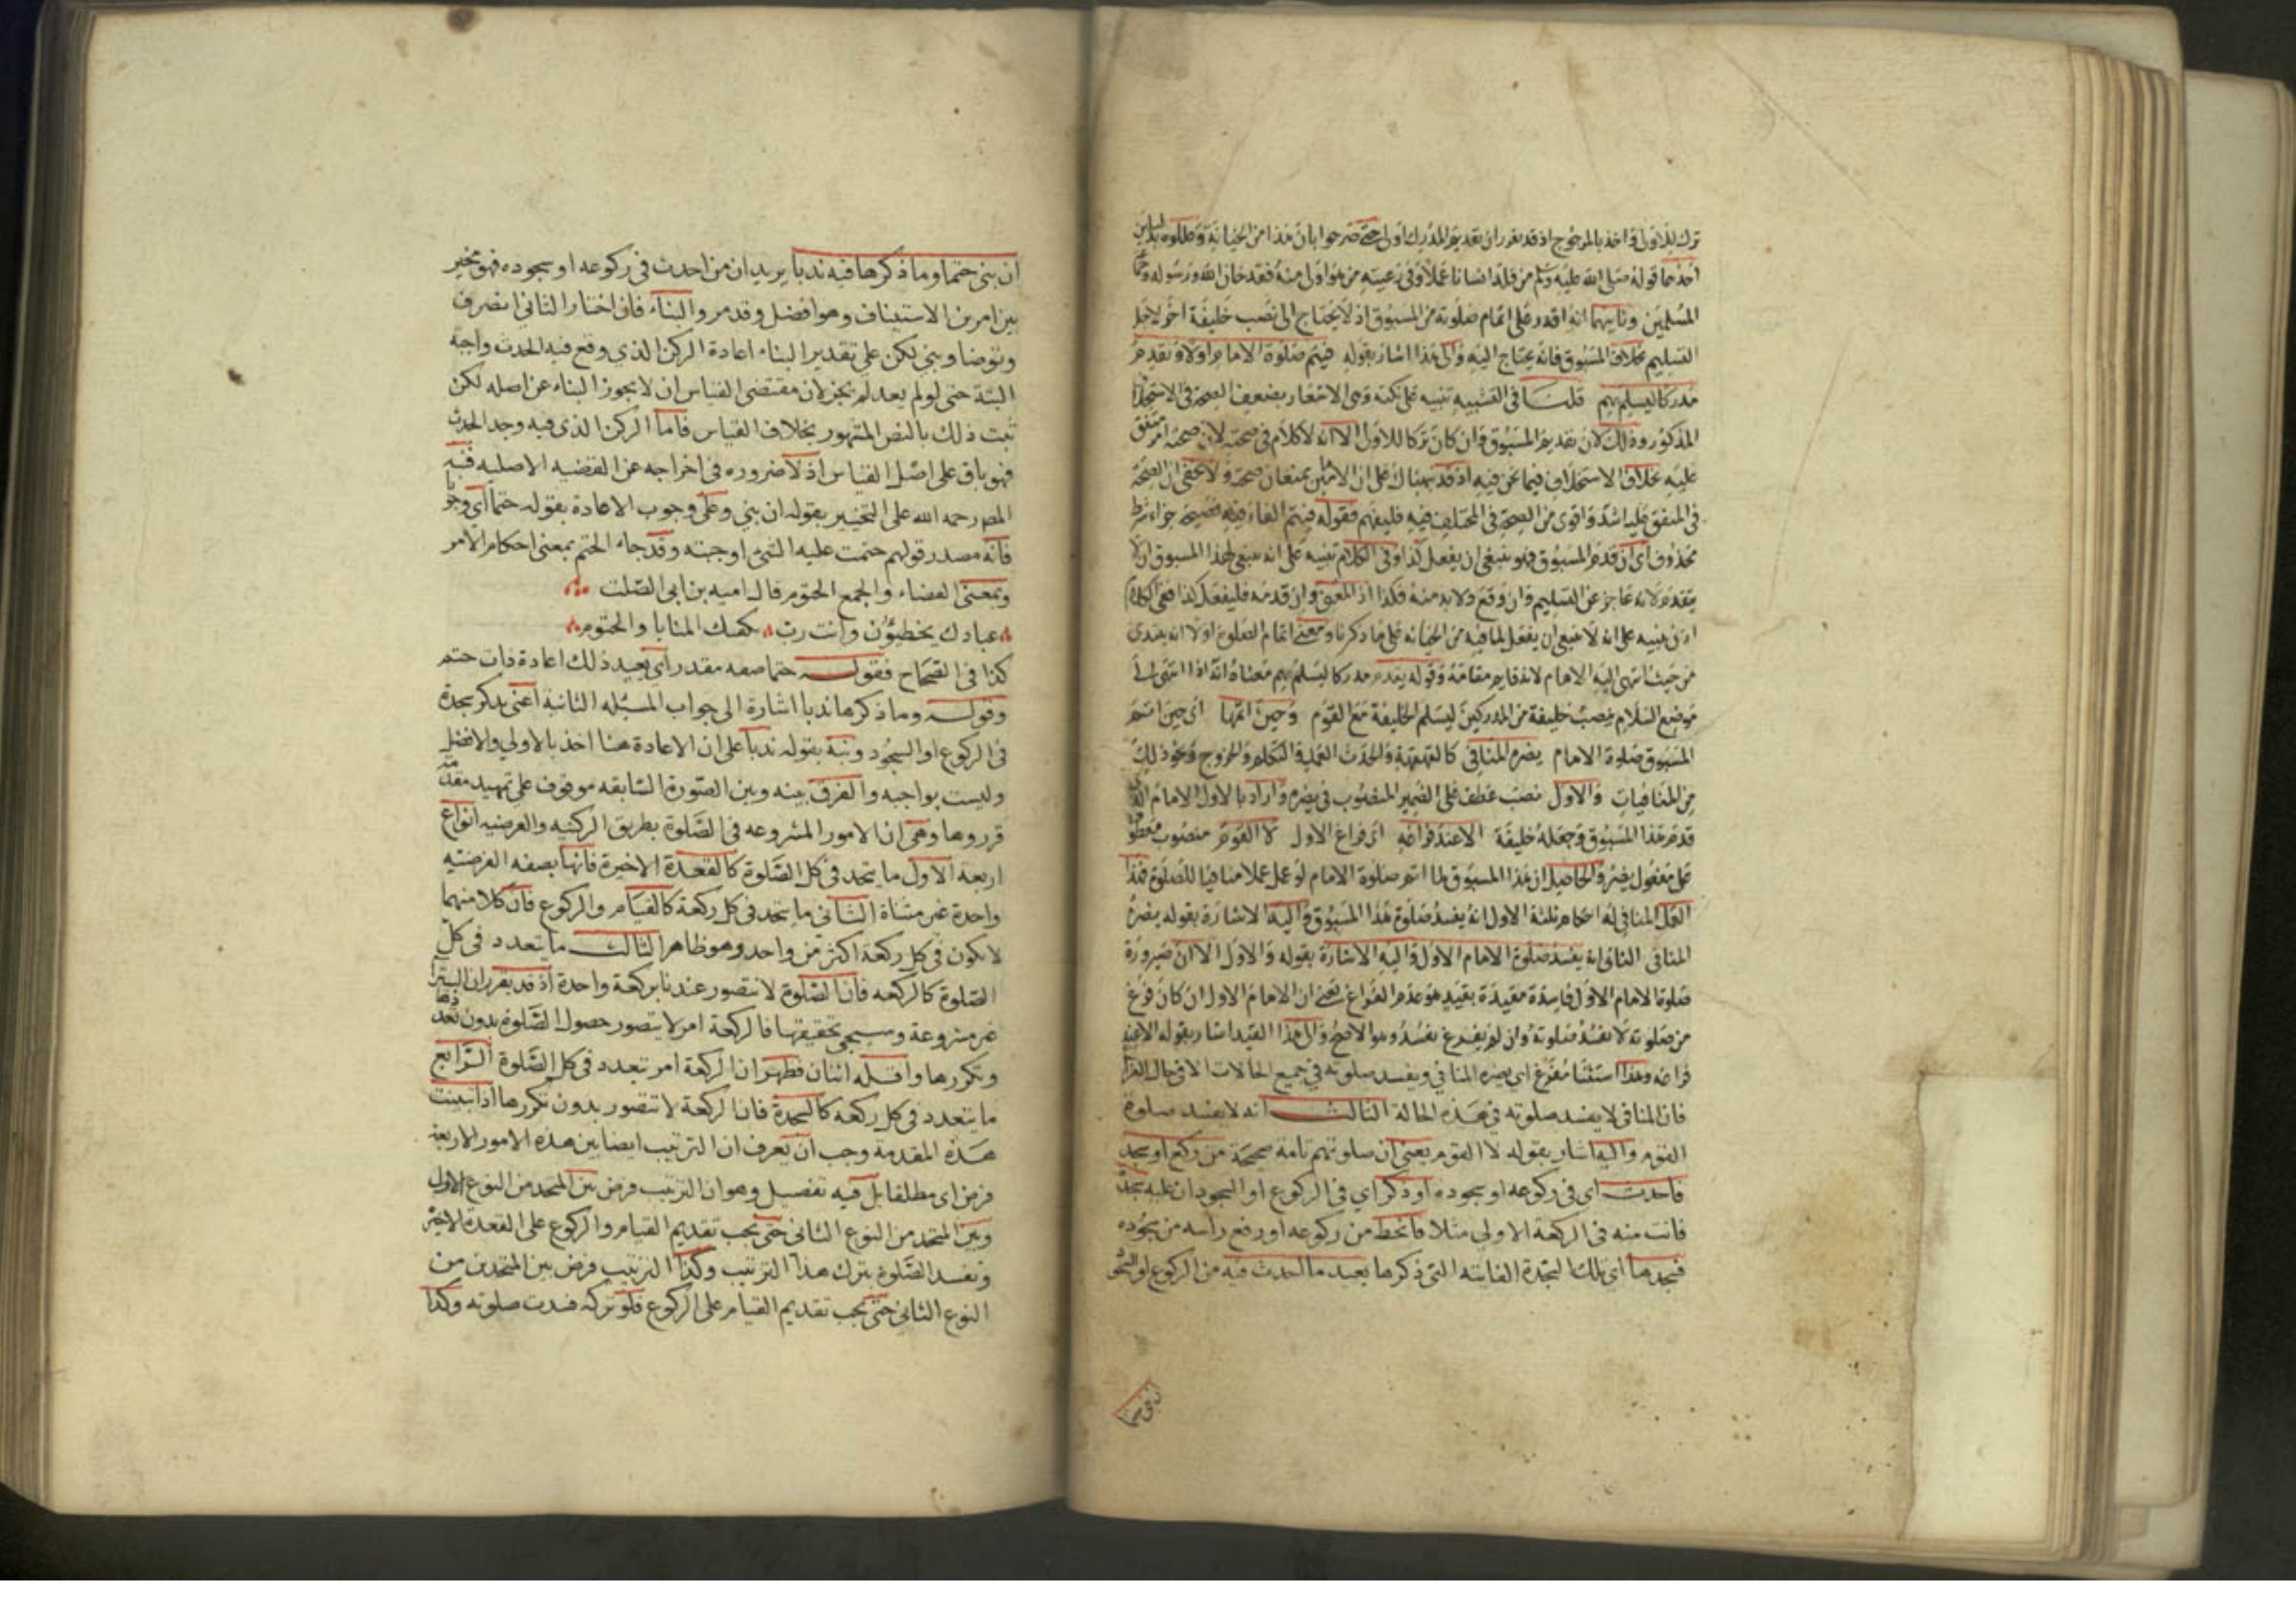 ترك للاولى واخذ بالمرجوح اذ قد تقرر ان تقديم المدرك اولى حتى صرحوا بان هذا من الخيانة وعللوه بدليلين
احدهما قوله صلى الله عليه وسلم من قلد انسانا عملا وفي رعيته من هو اولى منه فقد خان الله ورسوله
المسلمين وثانيهما انه اقدر على اتمام صلوته من المسبوق اذ لا يحتاج الى نصب خليفة اخر لاجل
التسليم بخلاف المسبوق فانه يحتاج اليه والى هذا اشار بقوله فيتم صلوة الامام اولا وتقديم
مدركا ليسلم بهم قلنا في التشبيه تنبيه على نكتة وهي الاشعار بضعف الصحة في الاستخلاف
المذكور وذلك لان تقديم المسبوق وان كان تركا للاولى الا انه لا كلام في صحته لان صحته امر متفق
عليه بخلاف الاستخلاف فيما نحن فيه اذ قد هناك على ان الامرين يمنعان صحته ولا يخفى ان الصحة
في المتفق عليه اشد واقوى من الصحة في المختلف فيه فليفهم فقوله فيتم الفاء فيه فصيحة جزاء شرط
محذوف اي ان قدم المسبوق فهو ينبغي ان يفعل كذا وفي الكلام تنبيه على انه ينبغي لهذا المسبوق ان لا
يتقدم لانه عاجز عن التسليم وان وقع ولا بد منه فكذا اذ المعنى وان قدمه فليفعل كذا ففي الكلام
تنبيه على انه لا ينبغي ان يفعل لما فيه من الخيانة على ما ذكرنا ومعنى اتمام الصلوة اولا انه يبتدئ
من حيث انتهى اليه الامام لانه قايم مقامه وقوله يقدم مدركا ليسلم بهم معناه انه اذا انتهى الى
موضع السلام ينصب خليفة من المدركين ليسلم الخليفة مع القوم وحين اتمها اي حين اتم
المسبوق صلوة الامام يضره المنافي كالقهقهة والحدث العمد والتكلم والخروج ونحو ذلك
من المنافيات والاول نصب عطف على الضمير المنصوب في يضره واراد بالاول الامام الذي
قدم هذا المسبوق وجعله خليفة الا عند فراغه اي فراغ الاول لا القوم منصوب معطوف
على مفعول يضر والحاصل ان هذا المسبوق لما اتم صلوة الامام لو عمل عملا منافيا للصلوة فهذا
العمل المنافي له احكام ثلثة الاول انه يفسد صلوة هذا المسبوق واليه الاشارة بقوله يضره
المنافي الثاني انه يفسد صلوة الامام الاول واليه الاشارة بقوله والاول الا ان ضرورة
صلوة الامام الاول فاسدة مقيدة بقيد هو عدم الفراغ يعني ان الامام الاول ان كان فرغ
من صلوته لا تفسد صلوته وان لم يفرغ تفسد وهو الاصح والى هذا القيد اشار بقوله الا عند
فراغه وهذا استثنا مفرغ اي يضره المنافي ويفسد صلوته في جميع الحالات الا في حال الفراغ
فان المنافي لا يفسد صلوته في هذه الحالة الثالث انه لا يفسد صلوة
القوم واليه اشار بقوله لا القوم يعني ان صلوتهم تامة صحيحة من ركع او سجد
فاحدث اي في ركوعه او سجوده او ذكر اي في الركوع او السجود ان عليه سجدة
فاتت منه في الركعة الاولى مثلا فانحط من ركوعه او رفع راسه من سجوده
فسجدها اي تلك السجدة الفايتة التي ذكرها يعيد ما احدث فيه من الركوع او السجود
ان بنى حتما
ان بنى حتما وما ذكرها فيه ندبا يريد ان من احدث في ركوعه او سجوده فهو مخير
بين امرين الاستيناف وهو افضل وقد مر والبناء فان اختار الثاني انصرف
وتوضا وبنى لكن على تقدير البناء اعادة الركن الذي وقع فيه الحدث واجبة
البتة حتى لو لم يعد لم يجز لان مقتضى القياس ان لا يجوز البناء عن اصله لكن
ثبت ذلك بالنص المشهور بخلاف القياس فاما الركن الذي فيه وجد الحدث
فهو باق على اصل القياس اذ لا ضروره في اخراجه عن القضيه الاصليه فنبه
المص رحمه الله على التخيير بقوله ان بنى وعلى وجوب الاعادة بقوله حتما اي وجوبا
فانه مصدر قولهم حتمت عليه الشئ اوجبته وقد جاء الحتم بمعنى احكام الامر
وبمعنى القضاء والجمع الحتوم قال اميه بن ابي الصلت
عبادك يخطئون وانت رب بكفيك المنايا والحتوم
كذا في الصحاح فقوله حتما صفه مقدر اي يعيد ذلك اعادة ذات حتم
وقوله وما ذكرها ندبا اشارة الى جواب المسئله الثانية اعني بذكر سجدة
في الركوع او السجود ونبه بقوله ندبا على ان الاعادة هنا اخذ بالاولي والافضل
وليست بواجبه والفرق بينه وبين الصورة السابقه موقوف على تمهيد مقدمة
قرروها وهي ان الامور المشروعه في الصلوة بطريق الركنيه والفرضيه انواع
اربعة الاول ما يتحد في كل الصلوة كالقعدة الاخيرة فانها بصفه الفرضيه
واحدة غير مثناة الثاني ما يتحد في كل ركعة كالقيام والركوع فان كلا منهما
لا يكون في كل ركعة اكثر من واحد وهو ظاهر الثالث ما يتعدد في كل
الصلوة كالركعه فان الصلوة لا تتصور عندنا بركعة واحدة اذ قد تقرر ان البتيرا
غير مشروعة وسيجئ تحقيقها فالركعة امر لا يتصور حصول الصلوة بدون تعددها
وتكررها واقله اثنان فظهر ان الركعة امر تعدد في كل الصلوة الرابع
ما يتعدد في كل ركعه كالسجدة فان الركعة لا تتصور بدون تكررها اذا تبينت
هذه المقدمة وجب ان يعرف ان الترتيب ايضا بين هذه الامور الاربعة
فرض اي مطلقا بل فيه تفصيل وهو ان الترتيب فرض بين المتحد من النوع الاول
وبين المتحد من النوع الثاني حتى يجب تقديم القيام والركوع على القعدة الاخيرة
وتفسد الصلوة بترك هذا الترتيب وكذا الترتيب فرض بين المتحدين من
النوع الثاني حتى يجب تقديم القيام على الركوع فلو تركه فسدت صلوته وكذا